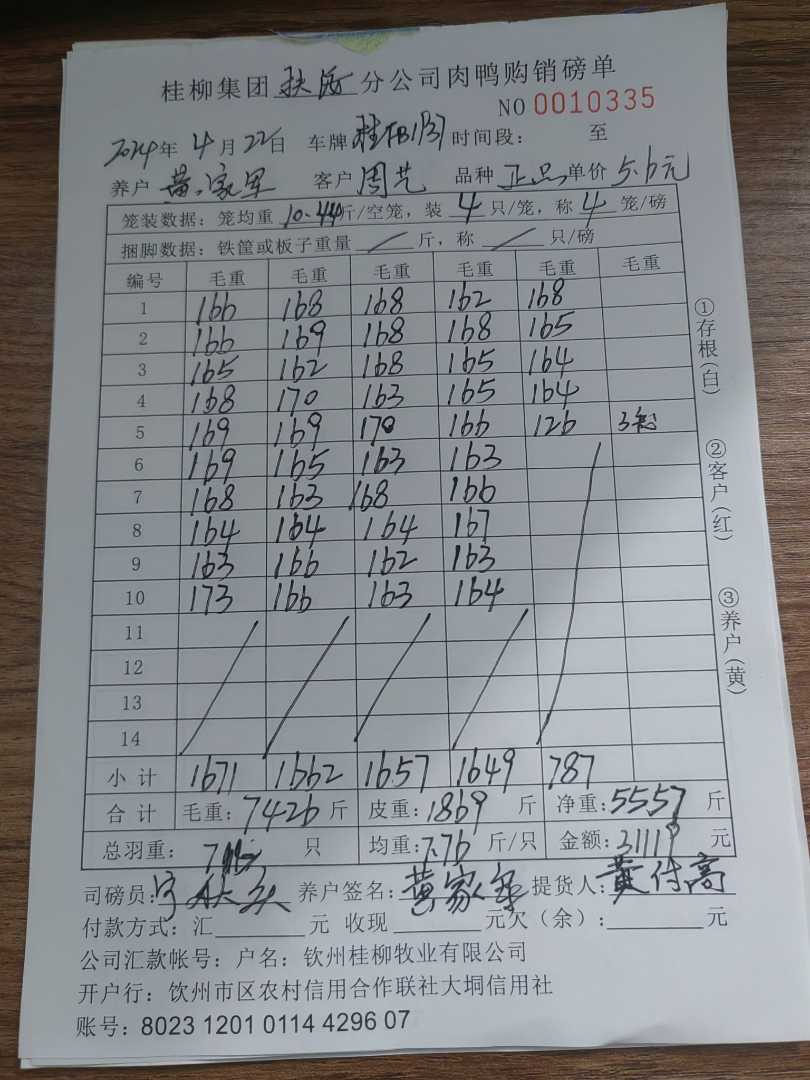 桂柳集团扶绥分公司肉鸭购销磅单
NO 0010335
2024年4月22日 车牌 时间段： 至
养户 黄家军 客户 周艺 品种 正品 单价 5.6元
笼装数据：笼均重 10.44斤/空笼，装 4 只/笼，称 4 笼/磅
捆脚数据：铁筐或板子重量 / 斤，称 / 只/磅
编号 毛重 毛重 毛重 毛重 毛重 毛重
1 166 168 168 162 168
2 166 169 168 168 165
3 165 162 168 165 164
4 168 170 163 165 164
5 169 169 170 166 126 3笼
6 169 165 163 163
7 168 163 168 166
8 164 164 164 167
9 163 166 162 163
10 173 166 163 164
11
12
13
14
小计 1671 1662 1657 1649 787
合计 毛重：7426斤 皮重：1869斤 净重：5557斤
总羽重： 716 只 均重：7.76斤/只 金额：31119元
司磅员： 养户签名：黄家军 提货人：黄付高
付款方式：汇 元 收现 元欠（余）： 元
公司汇款帐号：户名：钦州桂柳牧业有限公司
开户行：钦州市区农村信用合作联社大垌信用社
账号：8023 1201 0114 4296 07
①存根（白）
②客户（红）
③养户（黄）